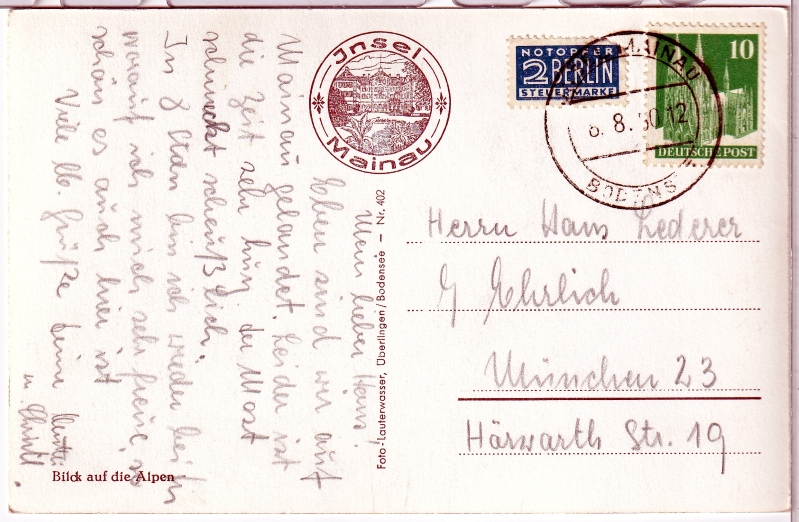 Mein lieber Hans!
Eben sind wir auf
Mainau gelandet. Leider ist
die Zeit sehr kurz. Der Most
schmeckt scheußlich.
In 8 Std. bin ich wieder bei Dir
worauf ich mich sehr freue, so
schön es auch hier ist
Viele lb. Grüße Deine Mutti
u. Christl.
Blick auf die Alpen
Insel
Mainau
Foto-Lauterwasser, Überlingen/Bodensee — Nr. 402
NOTOPFER
2 BERLIN
STEUERMARKE
10
DEUTSCHE POST
INSEL MAINAU
8.8.50.12
BODENS
Herrn Hans Lederer
b/ Ehrlich
München 23
Hörwarth Str. 19